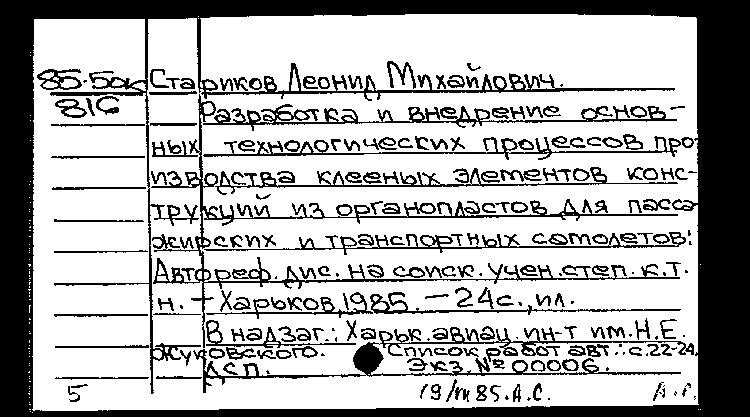 85-5ок Стариков, Леонид Михайлович.
816 Разработка и внедрение основ-
ных технологических процессов про-
изводства клееных элементов конс-
трукций из органопластов для пасса-
жирских и транспортных самолетов:
Автореф. дис. на соиск. учен. степ. к.т.
н. - Харьков, 1985. - 24с., ил.
В надзаг.: Харьк. авиац. ин-т им. Н.Е.
Жуковского. Список работ авт.: с.22-24.
ДСП. Экз. № 00006.
5 19/III 85. А.С. А.Г.